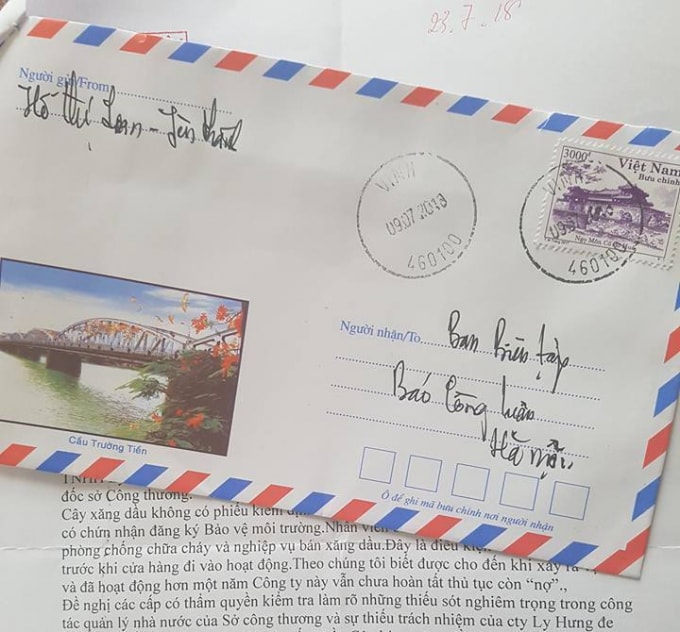 23.7.18
Người gửi/From
Hồ Thị Lan - Yên Thành
VINH
09.07.2018
460100
3000đ
Việt Nam
Bưu chính
VINH
09.07
460100
Người nhận/To
Ban biên tập
Báo Công luận
Cầu Trường Tiền
Ô để ghi mã bưu chính nơi người nhận
đốc sở Công thương.
Cây xăng dầu không có phiếu kiểm
có chứn nhận đăng ký Bảo vệ môi trường.Nhân viên
phòng chống chữa cháy và nghiệp vụ bán xăng dầu.Đây là điều kiện
trước khi cửa hàng đi vào hoạt động.Theo chúng tôi biết được cho đến khi xây
và đã hoạt động hơn một năm Công ty này vẫn chưa hoàn tất thủ tục còn “nợ”.,
Đề nghị các cấp có thẩm quyền kiểm tra làm rõ những thiếu sót nghiêm trọng trong công
tác quản lý nhà nước của Sở công thương và sự thiếu trách nhiệm của cty Ly Hưng để